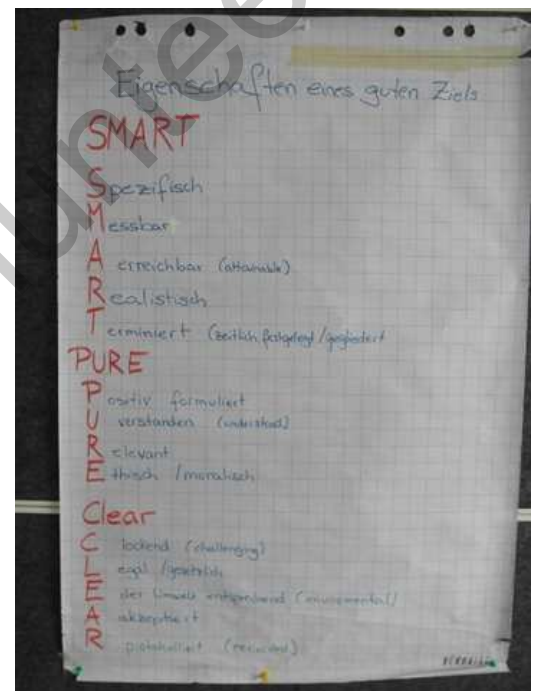 Eigenschaften eines guten Ziels
SMART
Spezifisch
Messbar
A erreichbar (attainable)
Realistisch
Terminiert (zeitlich festgelegt/gegliedert
PURE
Positiv formuliert
U verstanden (understood)
Relevant
Ethisch / moralisch
Clear
C lockend (challenging)
Legal / gesetzlich
E der Umwelt entsprechend (enviromental)
A akzeptiert
R protokolliert (recorded)